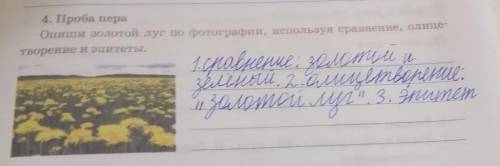 4. Проба пера
Опиши золотой луг по фотографии, используя сравнение, олице-
творение и эпитеты.
1. сравнение: золотой и
зеленый. 2. олицетворение:
"золотой луг". 3. эпитет